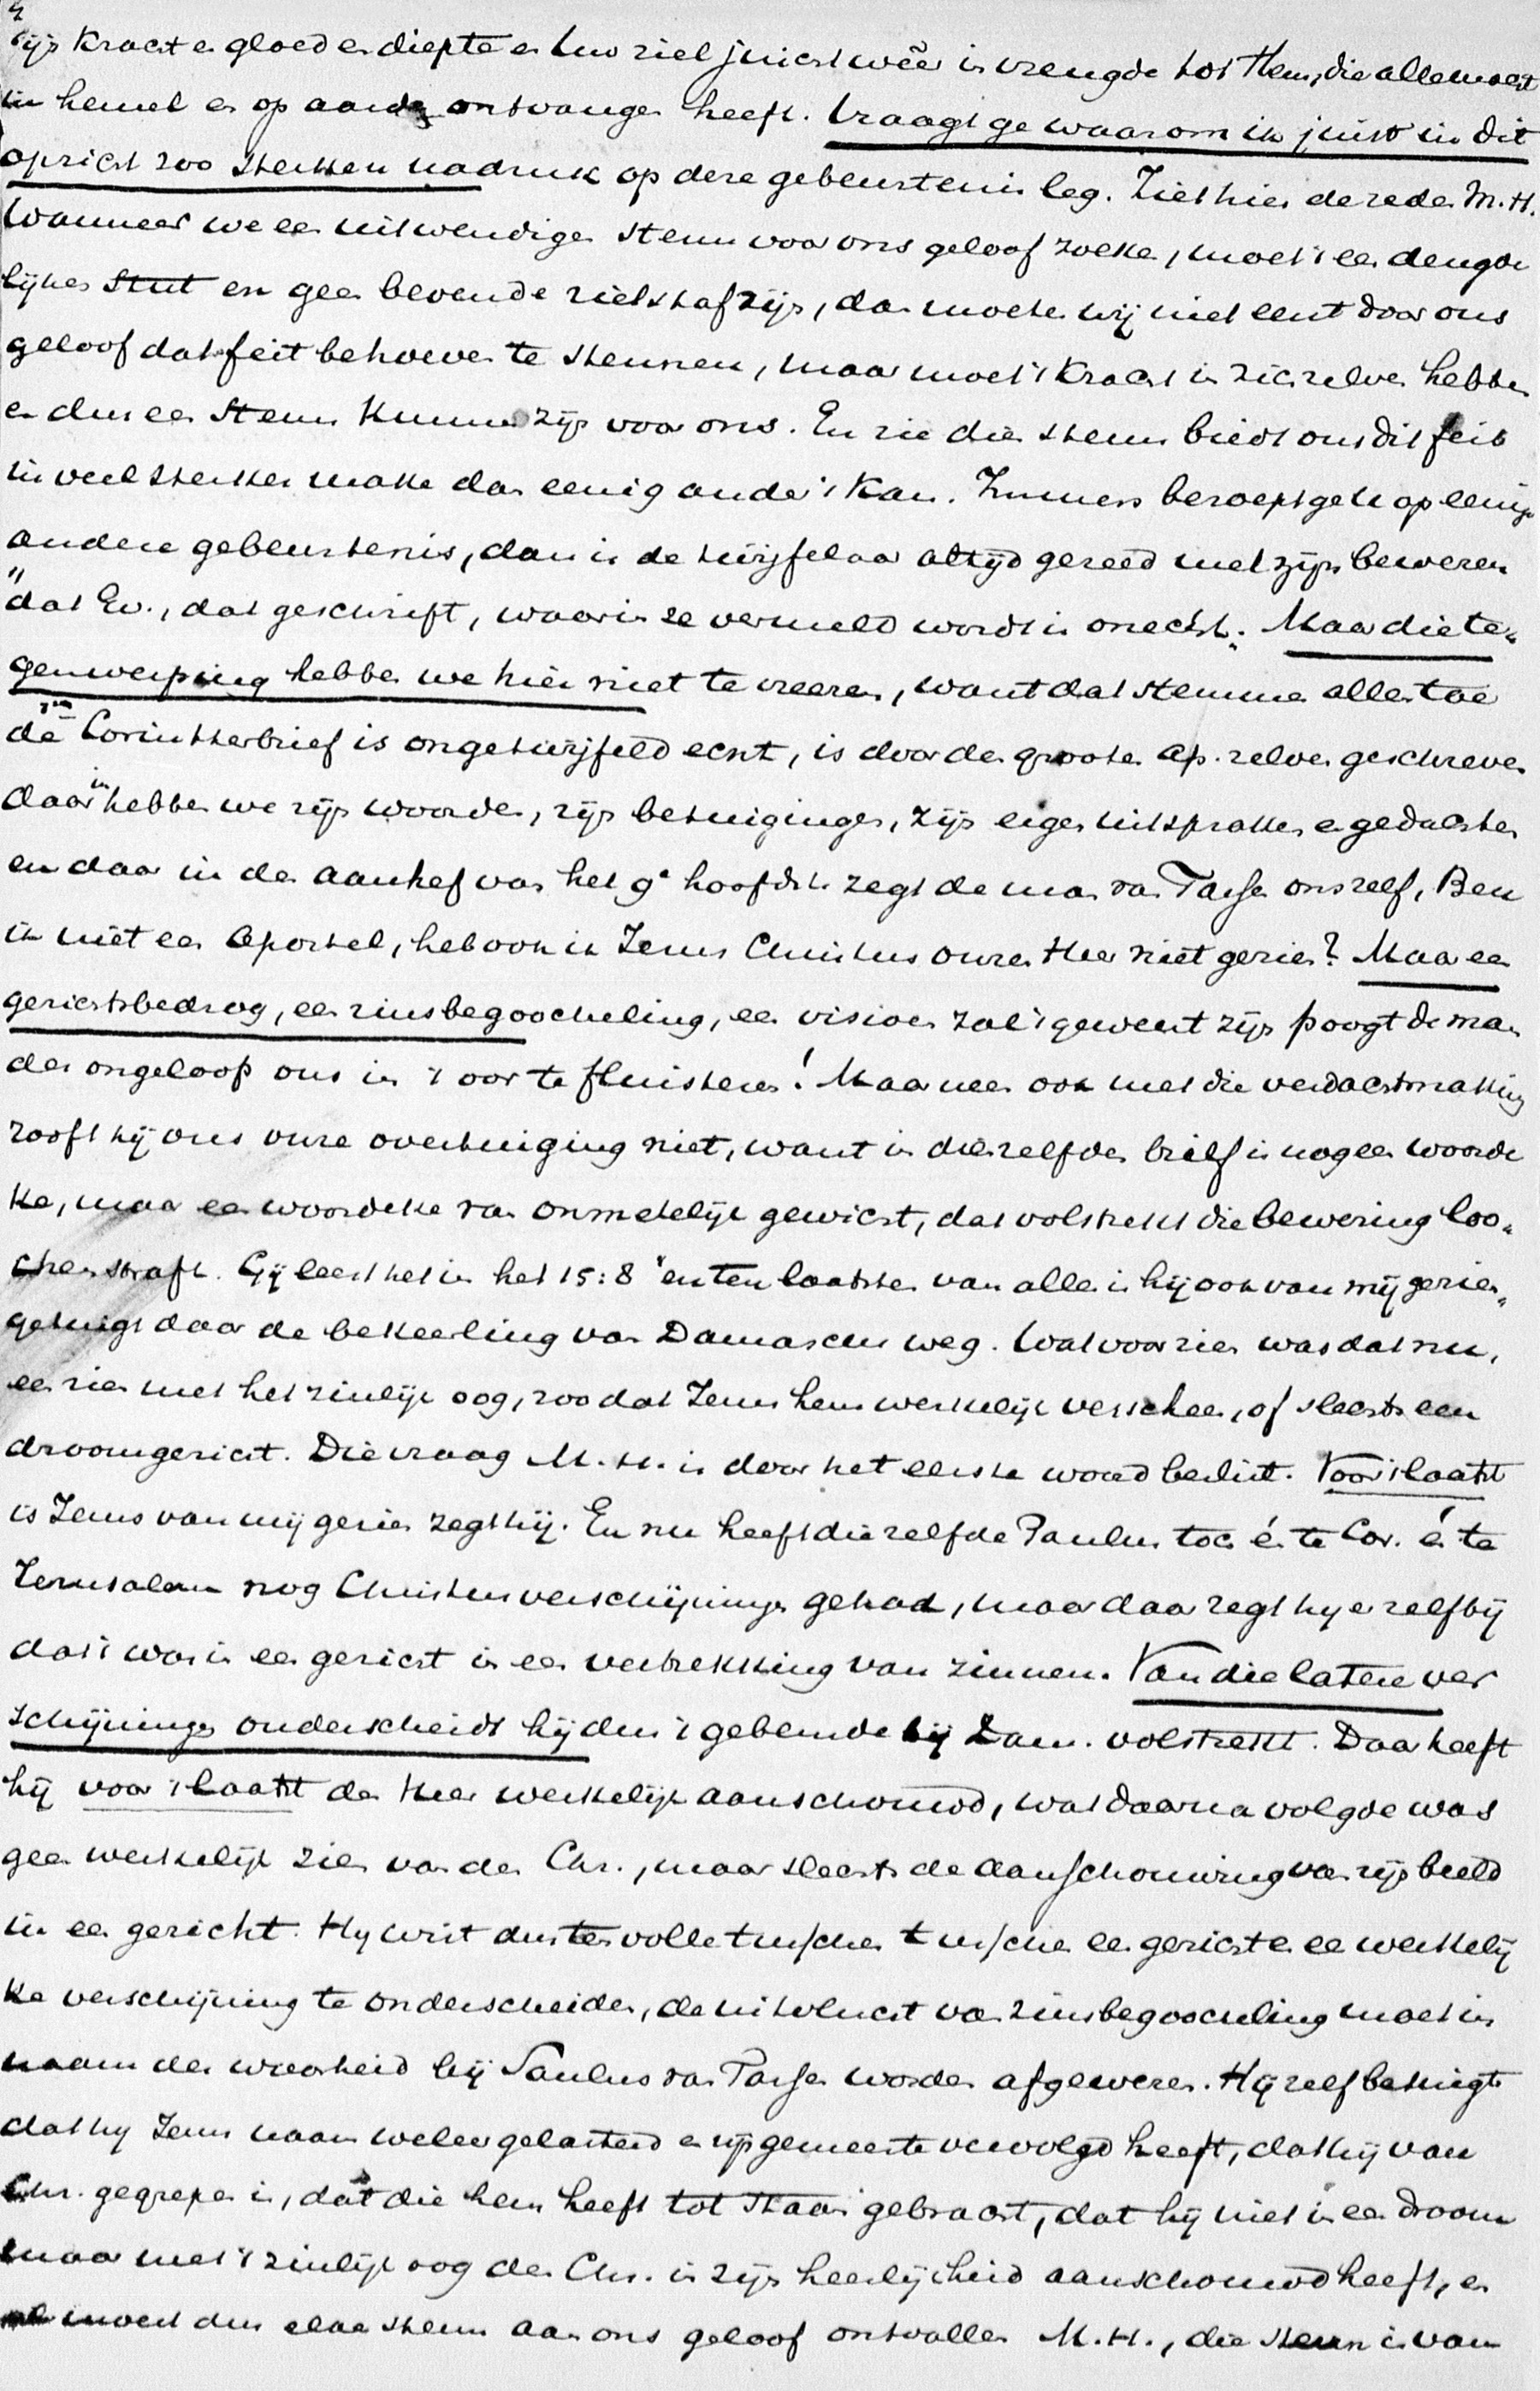 zijn kracht en gloed en diepte en Uw ziel juicht wêer in vreugde tot Hem, die alle macht
in hemel en op aarde ontvangen heeft. Vraagt ge waarom ik juist in dit
opzicht zoo sterken nadruk op deze gebeurtenis leg. Ziet hier de reden M.H.
Wanneer we een uitwendigen steun voor ons geloof zoeken, moet 't een deugde
lijken stut en geen bevende rietstaf zijn, dan moeten wij niet eerst door ons
geloof dat feit behoeven te steunen, maar moet 't kracht in zichzelve hebben
en dus een steun kunnen zijn voor ons. En zie dien steun biedt ons dit feit
in veel sterker mate dan eenig ander 't kan. Immers beroept ge U op eenige
andere gebeurtenis, dan is de twijfelaar altijd gereed met zijn beweren
"dat Ev., dat geschrift, waarin ze vermeld wordt is onecht". Maar die te„
genwerping hebben we hier niet te vreezen, want dat stemmen allen toe
de 1en Corintherbrief is ongetwijfeld echt, is door den grooten Ap. zelven geschreven
daarin hebben we zijn woorden, zijn betuigingen, zijn eigen uitspraken en gedachten
en daar in den aanhef van het 9e hoofdst. zegt de man van Tarsen ons zelf, Ben
ik niet een Apostel, heb ook ik Jezus Christus onzen Heer niet gezien? Maar een
gezichtsbedrog, een zinsbegoocheling, een visioen zal 't geweest zijn poogt de man
des ongeloofs ons in 't oor te fluisteren! Maar neen ook met die verdachtmaking
rooft hij ons onze overtuiging niet, want in dienzelfden brief is nog een woorde
ke, maar een woordeke van onmetelijk gewicht, dat volstrekt die bewering loo„
chenstraft. Gij leest het in het 15:8 "en ten laatsten van allen is hij ook van mij gezien„
getuigt daar de bekeerling van Damascus weg. Wat voor zien was dat nu,
een zien met het zinlijk oog, zoodat Jezus hem werkelijk verscheen, of slechts een
droomgezicht. Die vraag M.H. is door het eerste woord beslist. Voor 't laatst
is Jezus van mij gezien zegt hij. En nu heeft diezelfde Paulus toch én te Cor. én te
Jerusalem nog Christusverschijningen gehad, maar daar zegt hij er zelf bij
dat 't was in een gezicht in een vertrekking van zinnen. Van die latere ver
schijningen onderscheidt hij dus 't gebeurde bij Dam. volstrekt. Daar heeft
hij voor 't laatst den Heer werkelijk aanschouwd, wat daarna volgde was
geen werkelijk zien van den Chr., maar slechts de aanschouwing van zijn beeld
in een gezicht. Hij wist dus ten volle tusschen tusschen een gezicht en een werkelij
ke verschijning te onderscheiden, de uitvlucht van zinsbegoocheling moet in
naam der waarheid bij Saulus van Tarsen worden afgewezen. Hij zelf betuigt
dat hij Jezus naam weleer gelasterd en zijn gemeente vervolgd heeft, dat hij van
Chr. gegrepen is, dat die hem heeft tot staan gebracht, dat hij niet in een droom
maar met 't zinlijk oog den Chr. in zijn heerlijkheid aanschouwd heeft, en
moest dus elke steun aan ons geloof ontvallen M.H., die steun is van